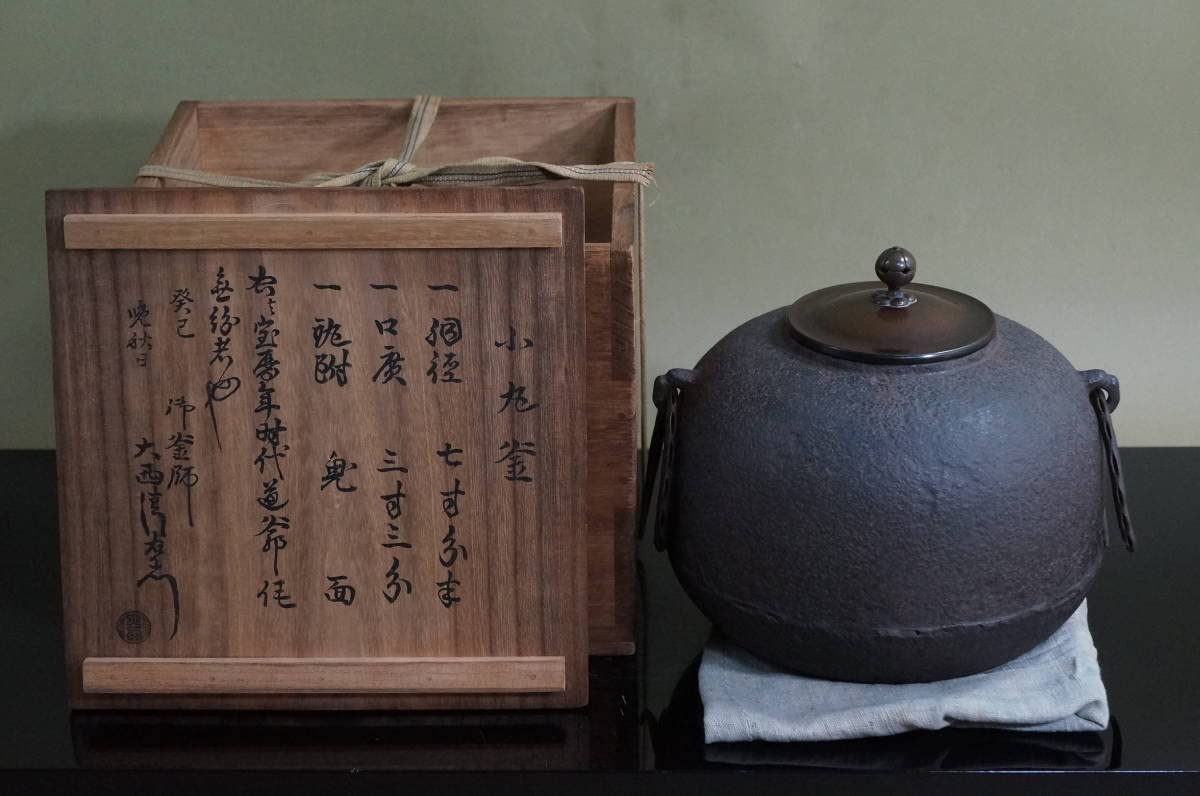 小丸釜
一 胴径 七寸分半
一 口広 三寸三分
一 鐶附 鬼面
右者宝暦年時代道翁作
無紛者也
癸巳
晩秋日
御釜師
大西清右衛門